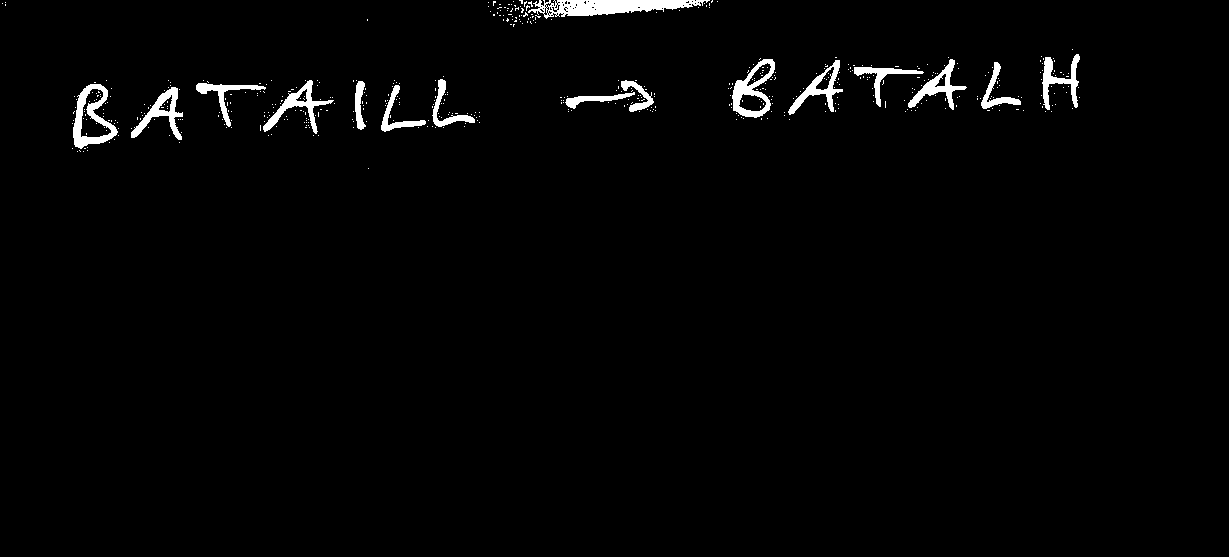 BATAILL → BATALH